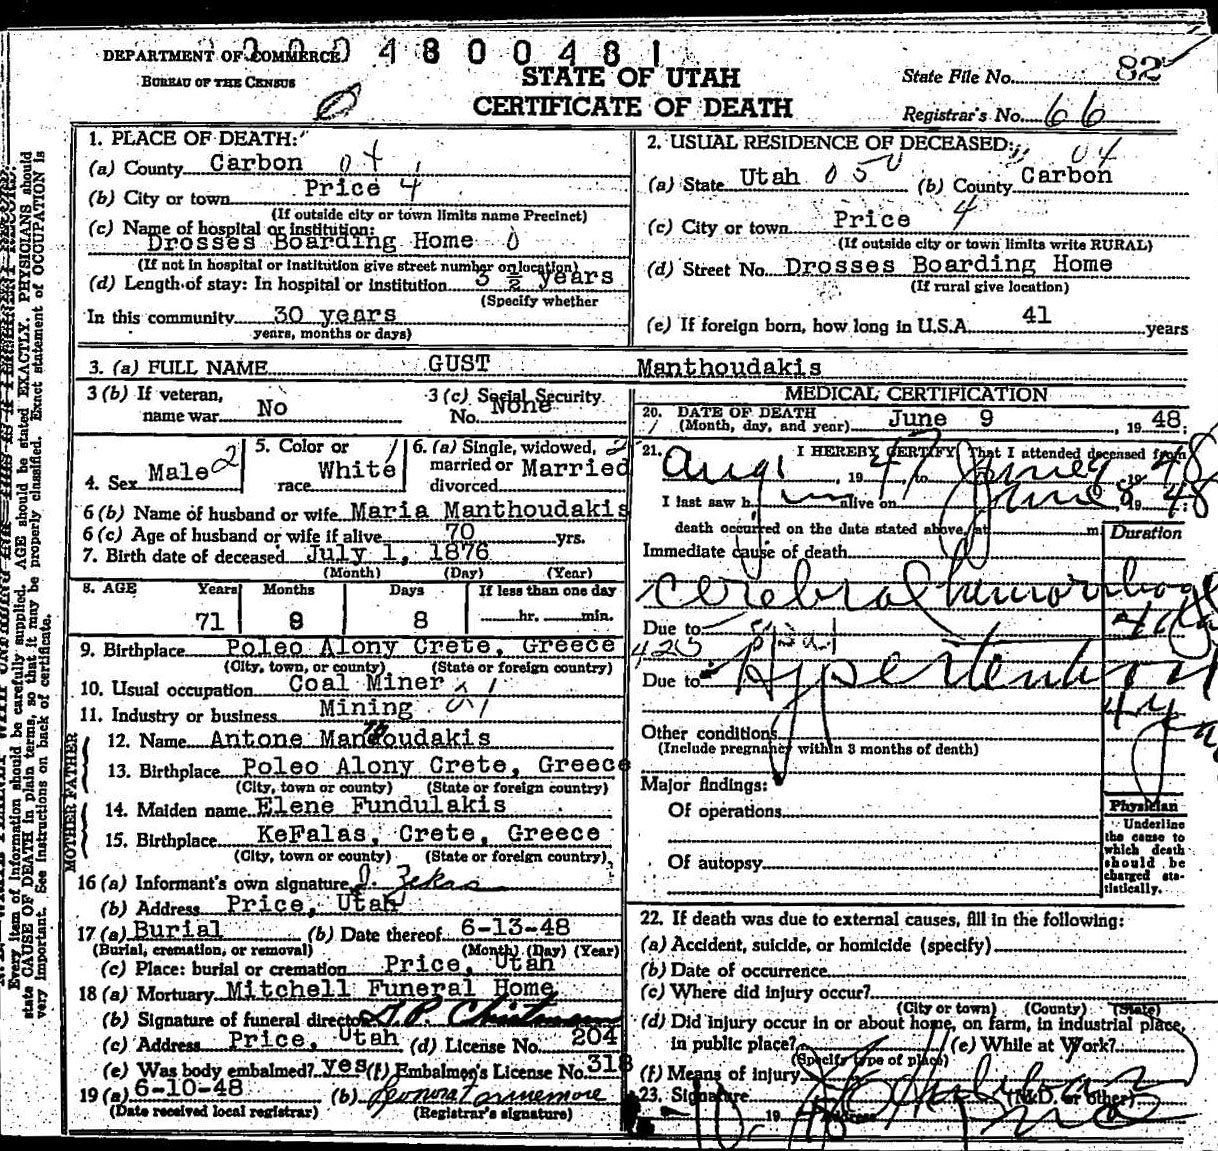 0004800481
DEPARTMENT OF COMMERCE
BUREAU OF THE CENSUS
STATE OF UTAH
CERTIFICATE OF DEATH
State File No. 82
Registrar's No. 66
1. PLACE OF DEATH:
(a) County Carbon 04
(b) City or town Price 4
(If outside city or town limits name Precinct)
(c) Name of hospital or institution:
Drosses Boarding Home 0
(If not in hospital or institution give street number or location)
(d) Length of stay: In hospital or institution 3 ½ years
(Specify whether
In this community 30 years
years, months or days)
2. USUAL RESIDENCE OF DECEASED: 04
(a) State Utah 050 (b) County Carbon
(c) City or town Price 4
(If outside city or town limits write RURAL)
(d) Street No. Drosses Boarding Home
(If rural give location)
(e) If foreign born, how long in U.S.A. 41 years
3. (a) FULL NAME GUST Manthoudakis
3 (b) If veteran,
name war No
3 (c) Social Security
No. None
4. Sex Male 2
5. Color or
race White 1
6. (a) Single, widowed, 2
married or Married
divorced
6 (b) Name of husband or wife Maria Manthoudakis
6 (c) Age of husband or wife if alive 70 yrs.
7. Birth date of deceased July 1, 1876
(Month) (Day) (Year)
8. AGE Years Months Days If less than one day
71 8 hr. min.
9. Birthplace Poleo Alony Crete, Greece
(City, town, or county) (State or foreign country)
10. Usual occupation Coal Miner
11. Industry or business Mining
FATHER
12. Name Antone Manthoudakis
13. Birthplace Poleo Alony Crete, Greece
(City, town or county) (State or foreign country)
MOTHER
14. Maiden name Elene Fundulakis
15. Birthplace KeFalas, Crete, Greece
(City, town or county) (State or foreign country)
16 (a) Informant's own signature J. Zekas
(b) Address Price, Utah
17 (a) Burial (b) Date thereof 6-13-48
(Burial, cremation, or removal) (Month) (Day) (Year)
(c) Place: burial or cremation Price, Utah
18 (a) Mortuary Mitchell Funeral Home
(b) Signature of funeral director
(c) Address Price, Utah (d) License No. 204
(e) Was body embalmed? yes (f) Embalmer's License No. 318
19 (a) 6-10-48 (b)
(Date received local registrar) (Registrar's signature)
MEDICAL CERTIFICATION
20. DATE OF DEATH June 9, 1948
(Month, day, and year)
21. I HEREBY CERTIFY, That I attended deceased from
Aug 1947, to June 9 1948
I last saw him alive on June 8 1948
death occurred on the date stated above, at m
Duration
Immediate cause of death
Cerebral hemorrhage
Due to
Due to Hypertension
4 years
Other conditions
(Include pregnancy within 3 months of death)
Major findings:
Of operations
Of autopsy
Physician
Underline
the cause to
which death
should be
charged sta-
tistically.
22. If death was due to external causes, fill in the following:
(a) Accident, suicide, or homicide (specify)
(b) Date of occurrence
(c) Where did injury occur?
(City or town) (County) (State)
(d) Did injury occur in or about home, on farm, in industrial place,
in public place? (e) While at Work?
(Specify type of place)
(f) Means of injury
23. Signature (M.D. or other)
1948 Address
Every item of information should be carefully supplied. AGE should be stated EXACTLY. PHYSICIANS should
state CAUSE OF DEATH in plain terms, so that it may be properly classified. Exact statement of OCCUPATION is
very important. See instructions on back of certificate.